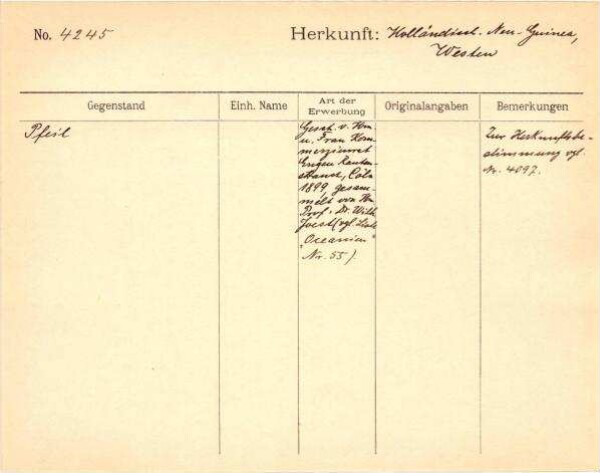 No. 4245
Herkunft: Holländisch-Neu-Guinea,
Westen
Gegenstand
Einh. Name
Art der
Erwerbung
Originalangaben
Bemerkungen
Pfeil
Gesch. v. Hrn
u. Frau Kom-
merzienrat
Eugen Rauten-
strauch, Cöln
1899, gesam-
melt von Hn
Prof. Dr. Wilh
Joest (vgl. Liste
"Oceanien"
Nr. 55).
Zur Herkunftsbe-
stimmung vgl.
Nr. 4097.